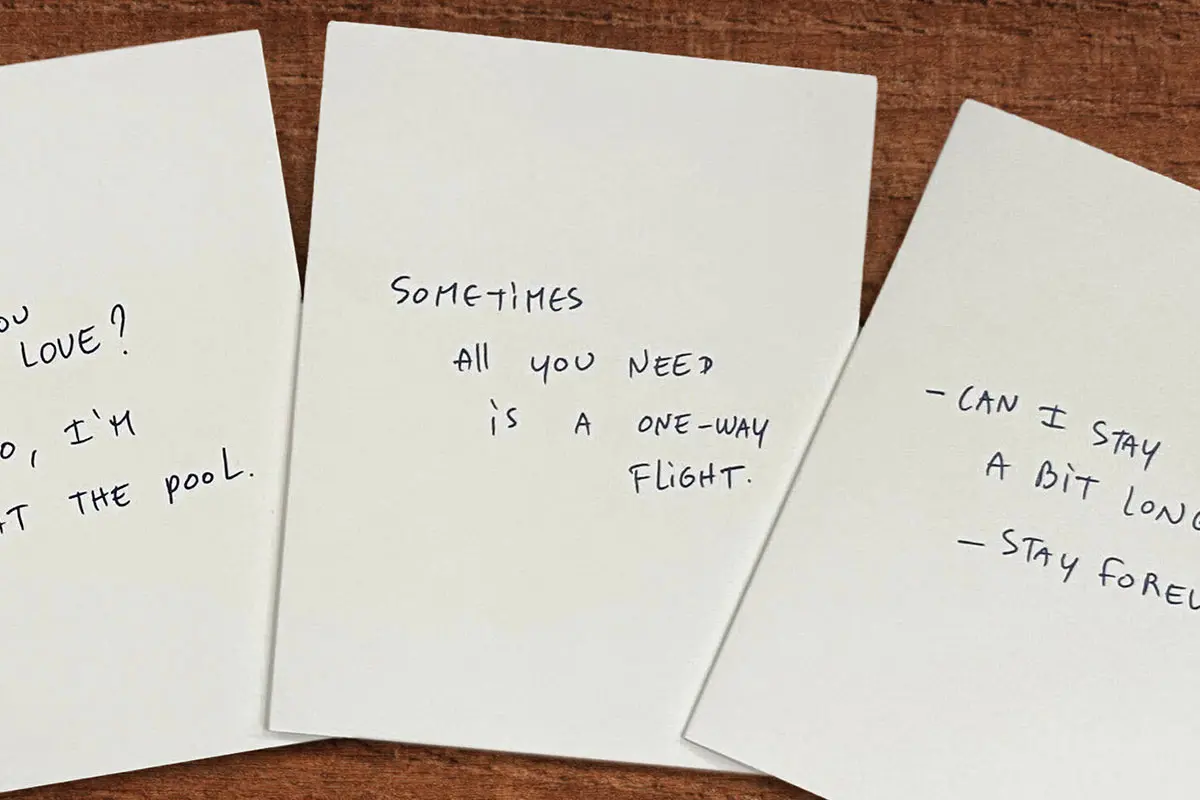 LOVE?
I'M
THE POOL.
SOMETIMES
All YOU NEED
iS A ONE-WAY
FLiGHT.
- CAN I STAY
A BiT
- STAY